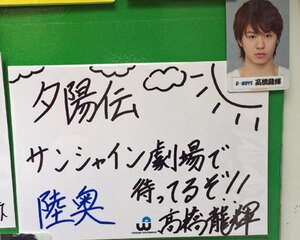 夕陽伝
サンシャイン劇場で
待ってるぞ!!
陸奥
高橋龍輝
D-BOYS 高橋龍輝